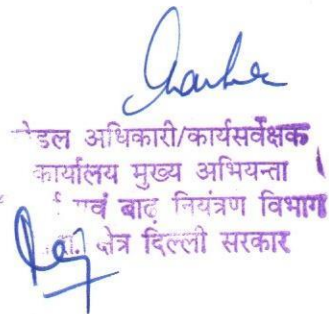 अधिकारी/कार्यसर्वेक्षक
कार्यालय मुख्य अभियन्ता
एवं बाढ़ नियंत्रण विभाग
क्षेत्र दिल्ली सरकार